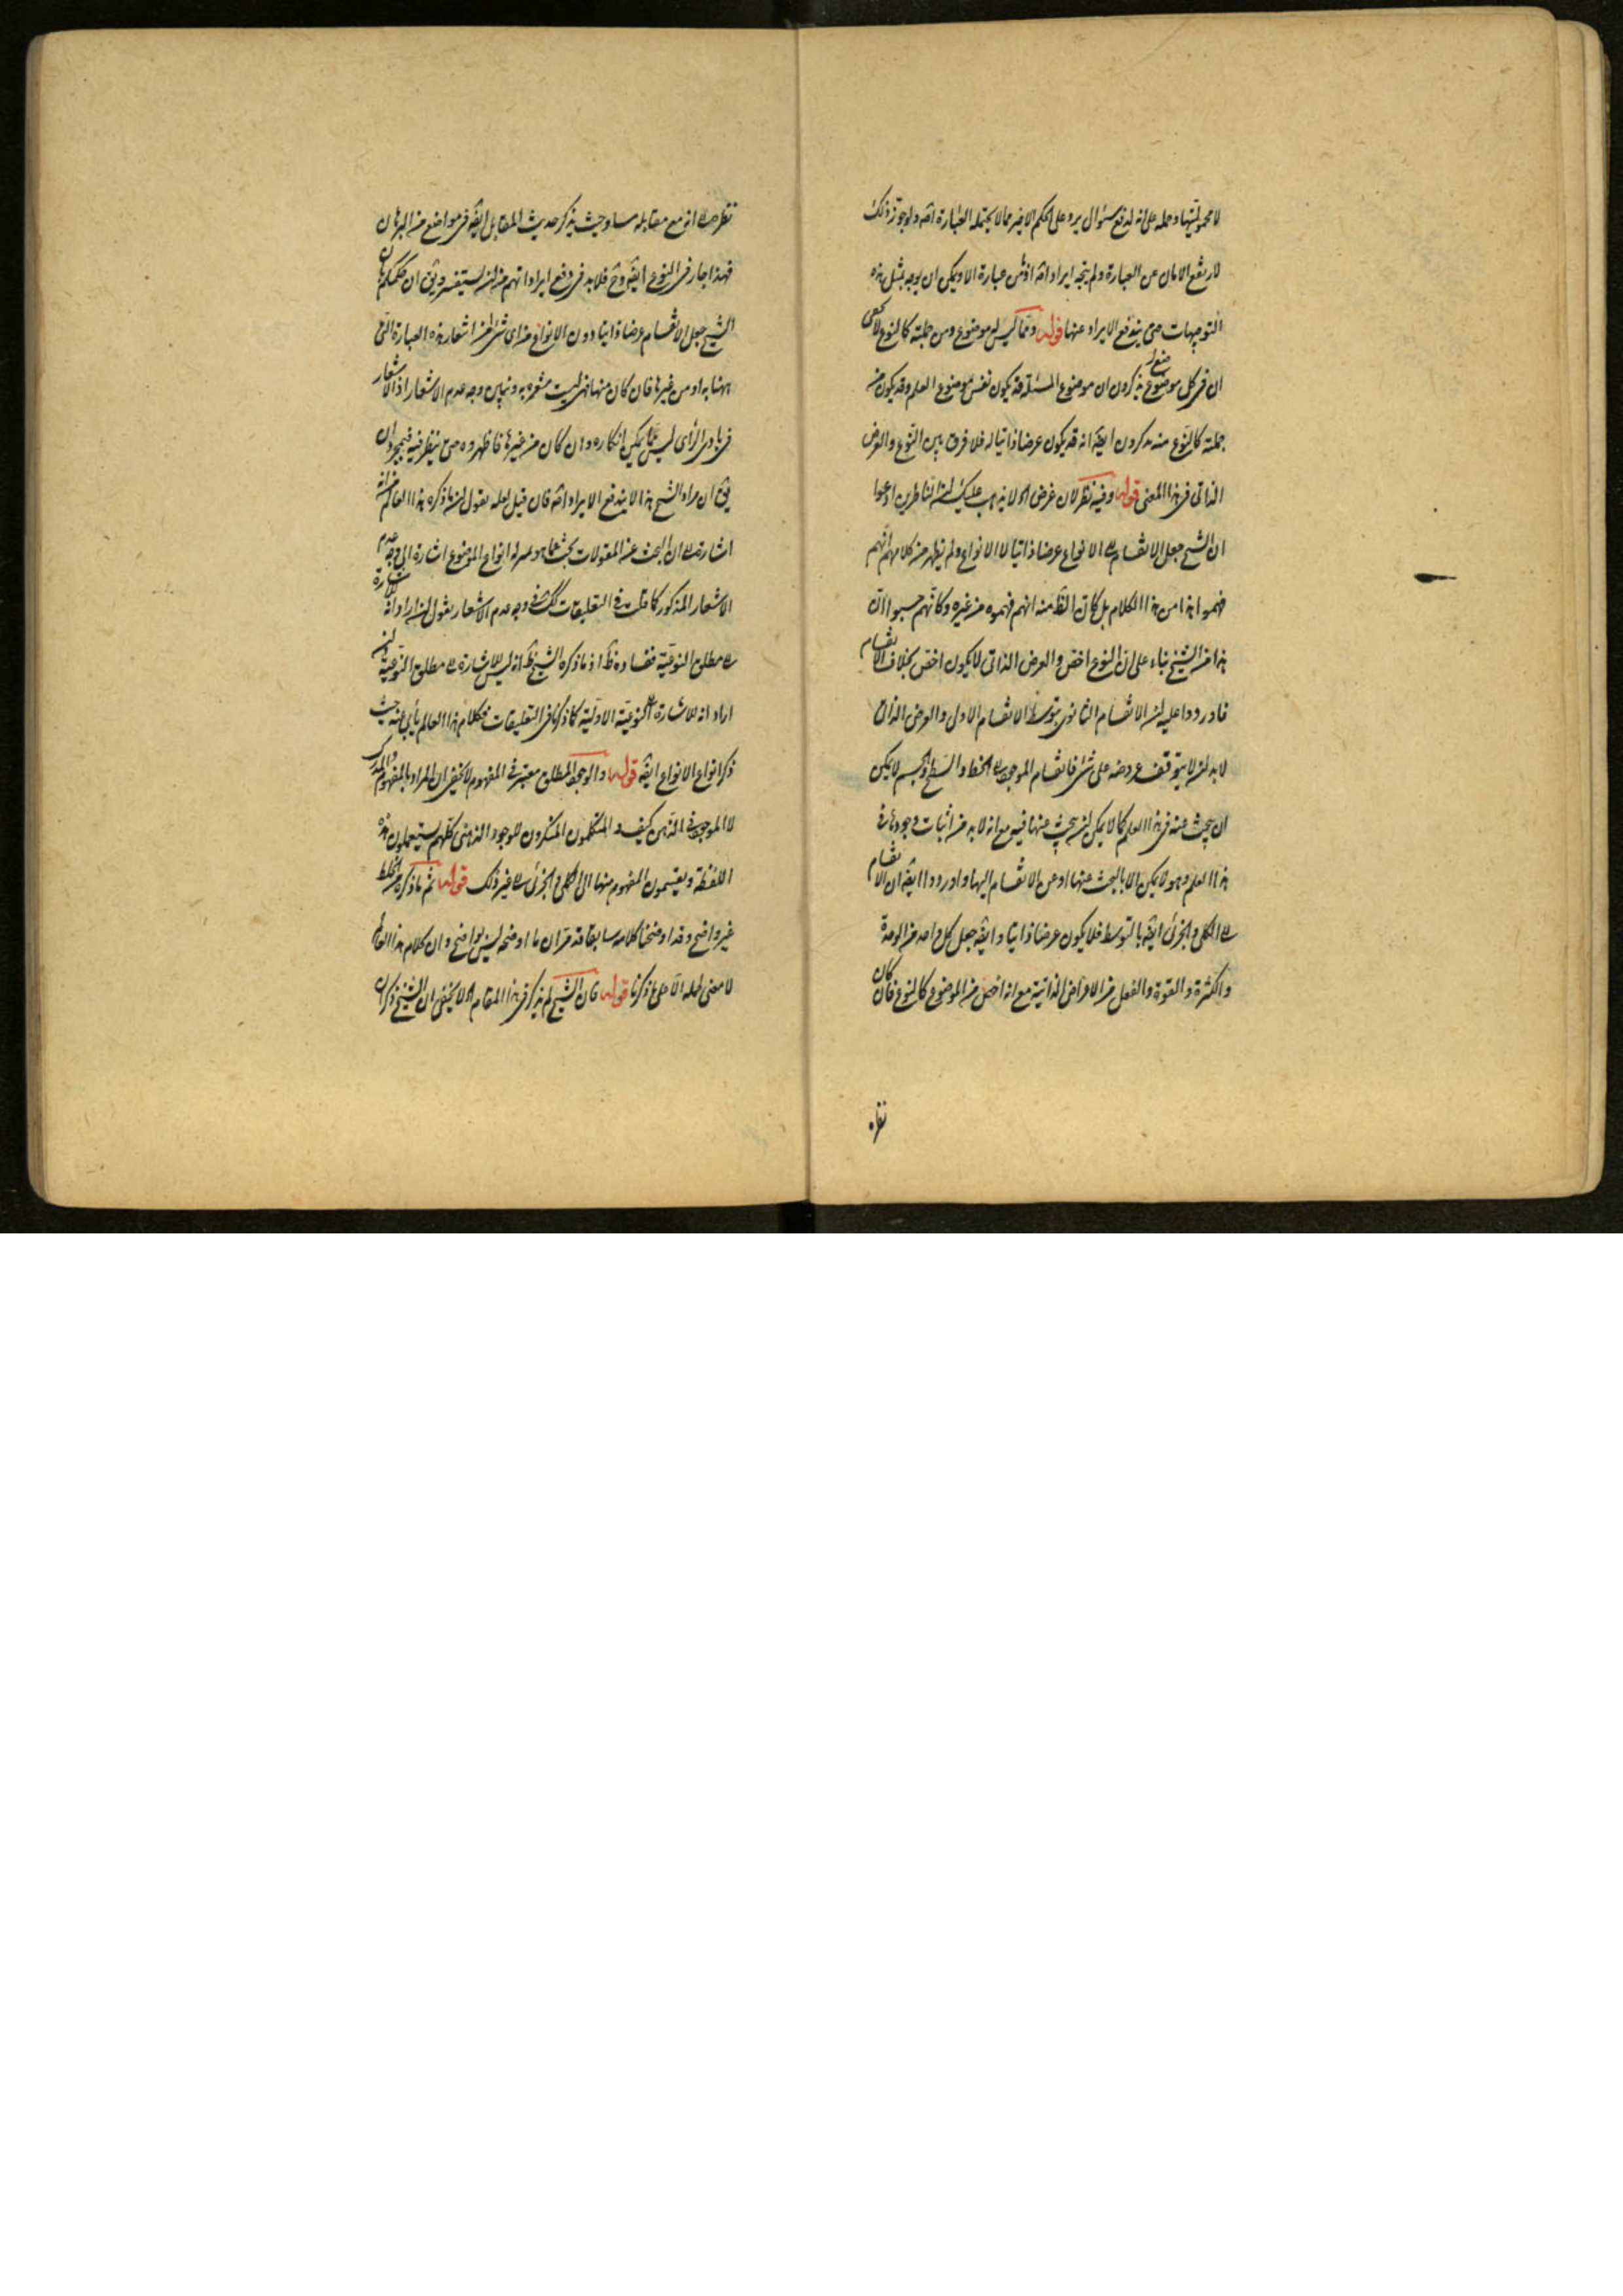 لا محموليتها وحمله على انه لدفع سؤال يرد على الحكم الاخير مما لا يحتمله العبارة اصلا ولو جوّز ذلك
لارتفع الامان عن العبارة ولم يتجه ايراد اصلا اذ ما من عبارة الا ويمكن ان يوجه بمثل هذه
التوجيهات حتى يندفع الايراد عنها قوله ومما ليس له موضوع ومن جملته كالنوع لا يخفى
ان فى كل موضوع يذكرون ان موضوع المسئلة قد يكون نفس موضوع العلم وقد يكون من
جملته كالنوع منه يذكرون ايضا انه قد يكون عرضا ذاتيا له فلا فرق بين النوع والعرض
الذاتى فى هذا المعنى قوله وفيه نظر لان غرض اه لا يذهب عليك ان الناظرين ادعوا
ان الشيخ جعل الانقسام الى الانواع عرضا ذاتيا لا الانواع ولم يظهر من كلامهم انهم
فهموا هذا من هذا الكلام بل كان الظ منه انهم فهموه من غيره وكانهم حسبوا ان
هذا من الشيخ بناء على ان النوع اخص والعرض الذاتى لا يكون اخص بخلاف الانقسام
فاوردوا عليه ان الانقسام الثانوى بتوسط الانقسام الاول والعرض الذاتى
لا بد ان لا يتوقف عروضه على شئ فانقسام الموجود الى الخط والسطح والجسم لا يمكن
ان يبحث عنه فى هذا العلم كما لا يمكن ان يبحث عنها فيه مع انه لا بد من اثبات وجودها فى
هذا العلم وهو لا يمكن الا بالبحث عنها او عن الانقسام اليها واوردوا ايضا ان الانقسام
الى الكلى والجزئى ايضا بالتوسط فلا يكون عرضا ذاتيا وايضا جعل كل واحد من الوحدة
والكثرة والقوة والفعل من الاعراض الذاتية مع انه اخص من الموضوع كالنوع فان كان
نظره
نظره الى انه مع مقابله مساو حيث يذكر حديث المقابل ايضا فى مواضع من البرهان
فهذا جار فى النوع ايضا وح فلا بد فى دفع ايراداتهم من ان يستفسر ويق ان حكمكم بان
الشيخ جعل الانقسام عرضا ذاتيا دون الانواع من اى شئ امن اشعار هذه العبارة التى
ههنا به او من غيرها فان كان منها فهى ليست مشعرة به ونبين وجه عدم الاشعار اذ الاشعار
فى بادى الرأى ليس مما يمكن انكاره وان كان من غيرها فاظهروه حتى ينظر فيه فبمجرد ان
يق ان مراد الشيخ هذا لا يندفع الايراد اصلا فان قيل لعله يقول ان ما ذكره هذا العالم من انه
اشارة الى ان البحث عن المقولات بحث عما هو له انواع الموضوع اشارة الى وجه عدم
الاشعار المذكور كما قلت فى التعليقات فى وجه عدم الاشعار يقول ان اراد انه للاشارة
الى مطلق النوعية ففساده ظ اذ ما ذكره الشيخ ظ انه ليس للاشارة الى مطلق النوعية وان
اراد انه للاشارة الى النوعية الاولية كما ذكرنا فى التعليقات فكلام هذا العالم يأبى عنه حيث
ذكر انواع الانواع ايضا قوله والوجود المطلق معتبر فى المفهوم لا يخفى ان المراد بالمفهوم والمدرك
لا الموجود فى الذهن كيف والمتكلمون المنكرون للوجود الذهنى كلهم يستعملون هذه
اللفظة ويقسمون المفهوم منها الى الكلى والجزئى الى غير ذلك قوله ثم ما ذكره من الخلط
غير واضح وقد اوضحنا كلامه سابقا قد مر ان ما اوضحه ليس بواضح وان كلام هذا العالم
لا معنى له الا على ما ذكرنا قوله فان الشيخ لم يذكر فى هذا المقام اه لا يخفى ان الشيخ ذكر ان